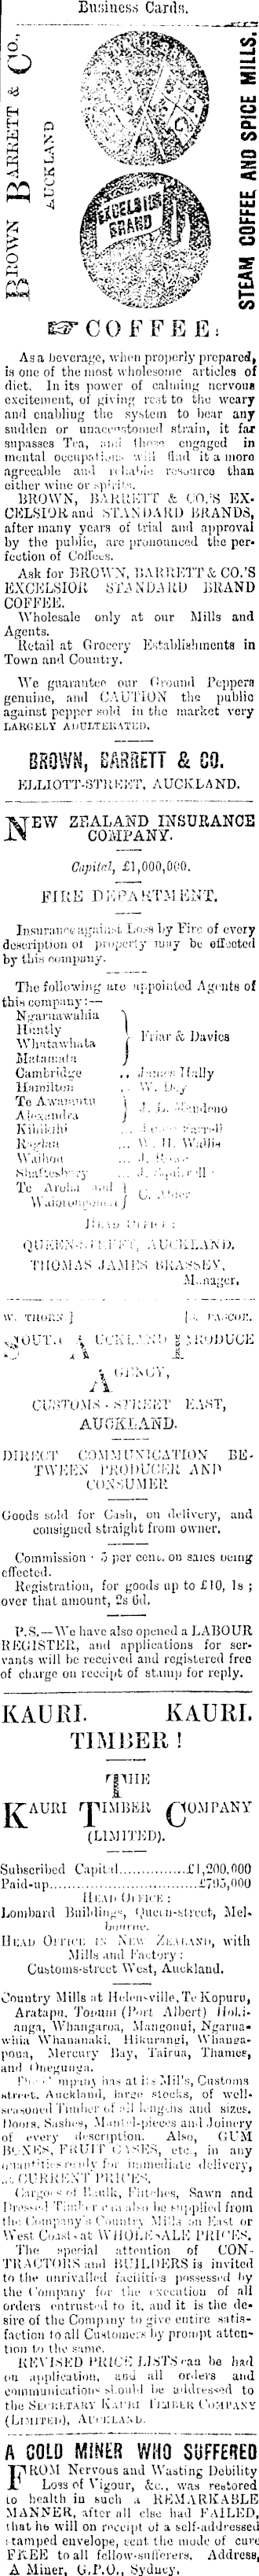 Business Cards.
BROWN BARRETT & CO.,
AUCKLAND
EXCELSIOR
BRAND
STEAM COFFEE AND SPICE MILLS.
COFFEE:
As a beverage, when properly prepared,
is one of the most wholesome articles of
diet. In its power of calming nervous
excitement, of giving rest to the weary
and enabling the system to bear any
sudden or unaccustomed strain, it far
supasses Tea, and those engaged in
mental occupations will find it a more
agreeable and reliable resource than
either wine or spirits.
BROWN, BARRETT & CO.'S EX-
CELSIOR and STANDARD BRANDS,
after many years of trial and approval
by the public, are pronounced the per-
fection of Coffees.
Ask for BROWN, BARRETT & CO.'S
EXCELSIOR STANDARD BRAND
COFFEE.
Wholesale only at our Mills and
Agents.
Retail at Grocery Establishments in
Town and Country.
We guarantee our Ground Peppers
genuine, and CAUTION the public
against pepper sold in the market very
LARGELY ADULTERATED.
BROWN, BARRETT & CO.
ELLIOTT-STREET, AUCKLAND.
NEW ZEALAND INSURANCE
COMPANY.
Capital, £1,000,000.
FIRE DEPARTMENT.
Insurance against Loss by Fire of every
description of property may be effected
by this company.
The following are appointed Agents of
this company:—
Ngaruawahia
Huntly
Whatawhata
Matamata
Friar & Davies
Cambridge .. James Hally
Hamilton .. W.
Te Awamutu
Alexandra
J.
Kihikihi
Raglan ... W. H. Wallis
Waihou ... J.
Shaftesbury ... J.
Te Aroha and
C.
HEAD OFFICE:
QUEEN-STREET, AUCKLAND.
THOMAS JAMES BRASSEY,
Manager.
W. THORN.]
PASCOE.
SOUTH AUCKLAND PRODUCE
AGENCY,
CUSTOMS-STREET EAST,
AUCKLAND.
DIRECT COMMUNICATION BE-
TWEEN PRODUCER AND
CONSUMER
Goods sold for Cash, on delivery, and
consigned straight from owner.
Commission 5 per cent. on sales being
effected.
Registration, for goods up to £10, 1s;
over that amount, 2s 6d.
P.S.—We have also opened a LABOUR
REGISTER, and applications for ser-
vants will be received and registered free
of charge on receipt of stamp for reply.
KAURI. KAURI.
TIMBER!
THE
KAURI TIMBER COMPANY
(LIMITED).
Subscribed Capital..............£1,200,000
Paid-up..............£795,000
HEAD OFFICE:
Lombard Buildings, Queen-street, Mel-
bourne.
HEAD OFFICE IN NEW ZEALAND, with
Mills and Factory:
Customs-street West, Auckland.
Country Mills at Helensville, Te Kopuru,
Aratapu, Tomun (Port Albert) Hoki-
anga, Whangaroa, Mangonui, Ngarua-
whia Whananaki, Hikurangi, Whanga-
poua, Mercury Bay, Tairua, Thames,
and Onehunga.
The Company has at its Mills, Customs
street, Auckland, large stocks, of well-
seasoned Timber of all lengths and sizes.
Doors, Sashes, Mantel-pieces and Joinery
of every description. Also, GUM
BOXES, FRUIT CASES, etc., in any
quantities ready for immediate delivery,
at CURRENT PRICES.
Cargoes of Baulk, Flitches, Sawn and
Dressed Timber can also be supplied from
the Company's Country Mills on East or
West Coast at WHOLESALE PRICES.
The special attention of CON-
TRACTORS and BUILDERS is invited
to the unrivalled facilities possessed by
the Company for the execution of all
orders entrusted to it, and it is the de-
sire of the Company to give entire satis-
faction to all Customers by prompt atten-
tion to the same.
REVISED PRICE LISTS can be had
on application, and all orders and
communications should be addressed to
the SECRETARY KAURI TIMBER COMPANY
(LIMITED), AUCKLAND.
A GOLD MINER WHO SUFFERED
FROM Nervous and Wasting Debility
Loss of Vigour, &c., was restored
to health in such a REMARKABLE
MANNER, after all else had FAILED,
that he will on receipt of a self-addressed
stamped envelope, sent the mode of cure
FREE to all fellow-sufferers. Address,
A Miner, G.P.O., Sydney.